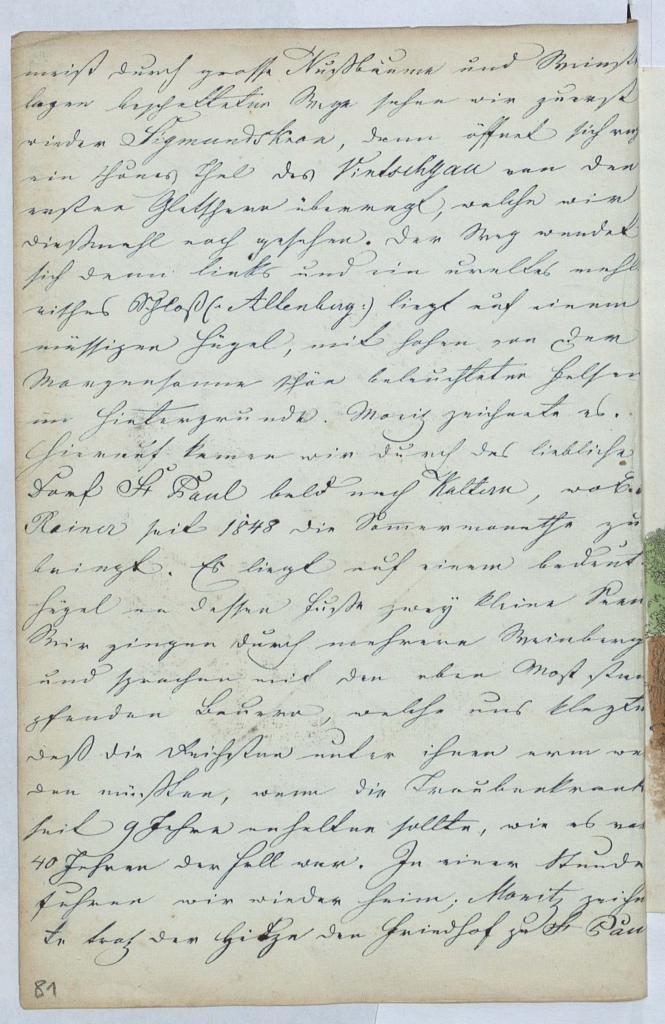 meist durch grosse Nußbäume und Weinst
lagen beschatteten Wege sehen wir zuerst
wieder Sigmundskron, dann öffnet sich
ein schönes Thal des Vintschgau von den
ersten Gletschern überragt, welche wir
dießmahl noch gesehen. Der Weg wendet
sich dann links und ein uraltes mahl
risches Schloß (: Altenberg :) liegt auf einem
mässigen Hügel, mit hohen von der
Morgensonne schön beleuchteten Felsen
im Hintergrunde. Moritz zeichnete es.
Hierauf kamen wir durch das liebliche
Dorf St Paul bald nach Kaltern, wo
Rainer seit 1848 die Sommermonathe zu
bringt. Es liegt auf einem bedeut
Hügel an dessen Fuße zwey kleine Seen
Wir gingen durch mehrere Weinberg
und sprachen mit den eben Most stam
pfenden Bauern, welche uns klagten
daß die Reichsten unter ihnen arm we
den müßten, wenn die Traubenkrank
seit 9 Jahre anhalten sollte, wie es vor
40 Jahren der Fall war. In einer Stunde
fuhren wir wieder heim; Moritz zeichn
te trotz der Hitze den Friedhof zu St Paul
81